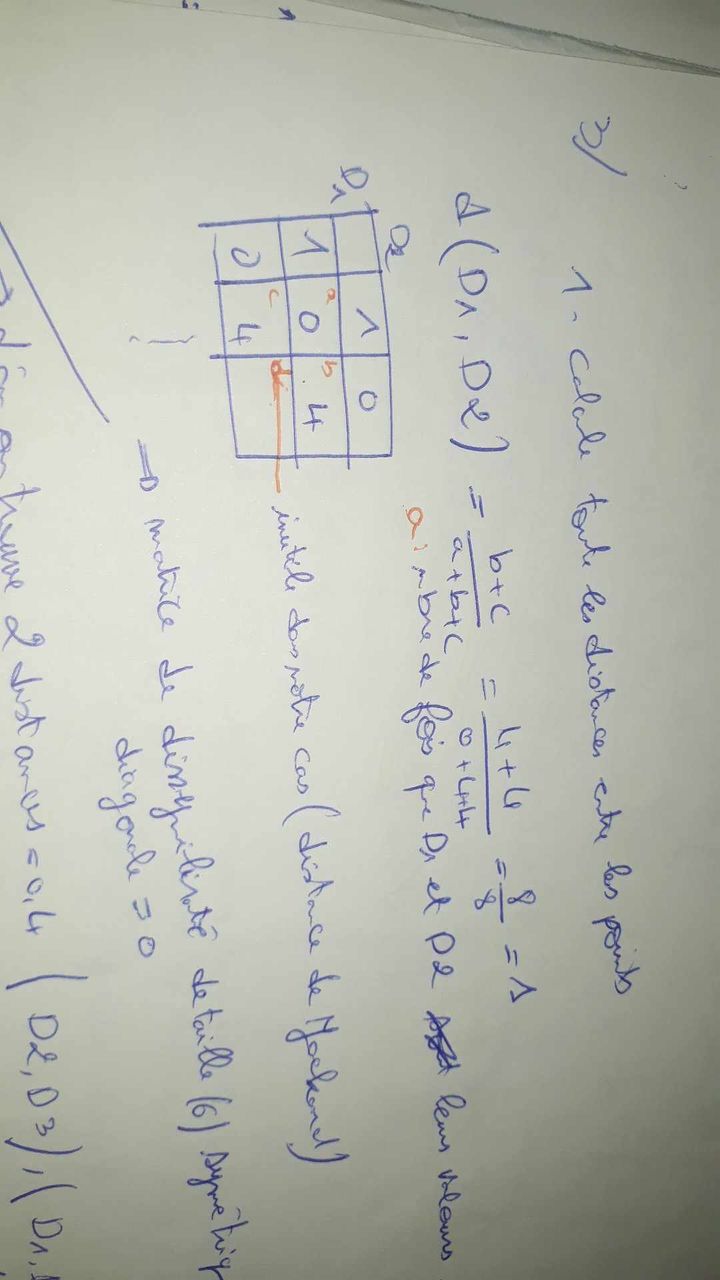 3/
1 - calcule toute les distances entre les points
d(D1, D2) = b+c / a+b+c = 4+4 / 0+4+4 = 8/8 = 1
a : nbre de fois que D1 et D2 leurs valeurs
D2
D1
1 0
1 a 0 b 4
inutile dans notre cas (distance de Jackard)
0 c 4 d
=> matrice de dissimilarité de taille (6) symétriq
diagonale = 0
on trouve 2 distances = 0,4 (D2, D3), (D1,